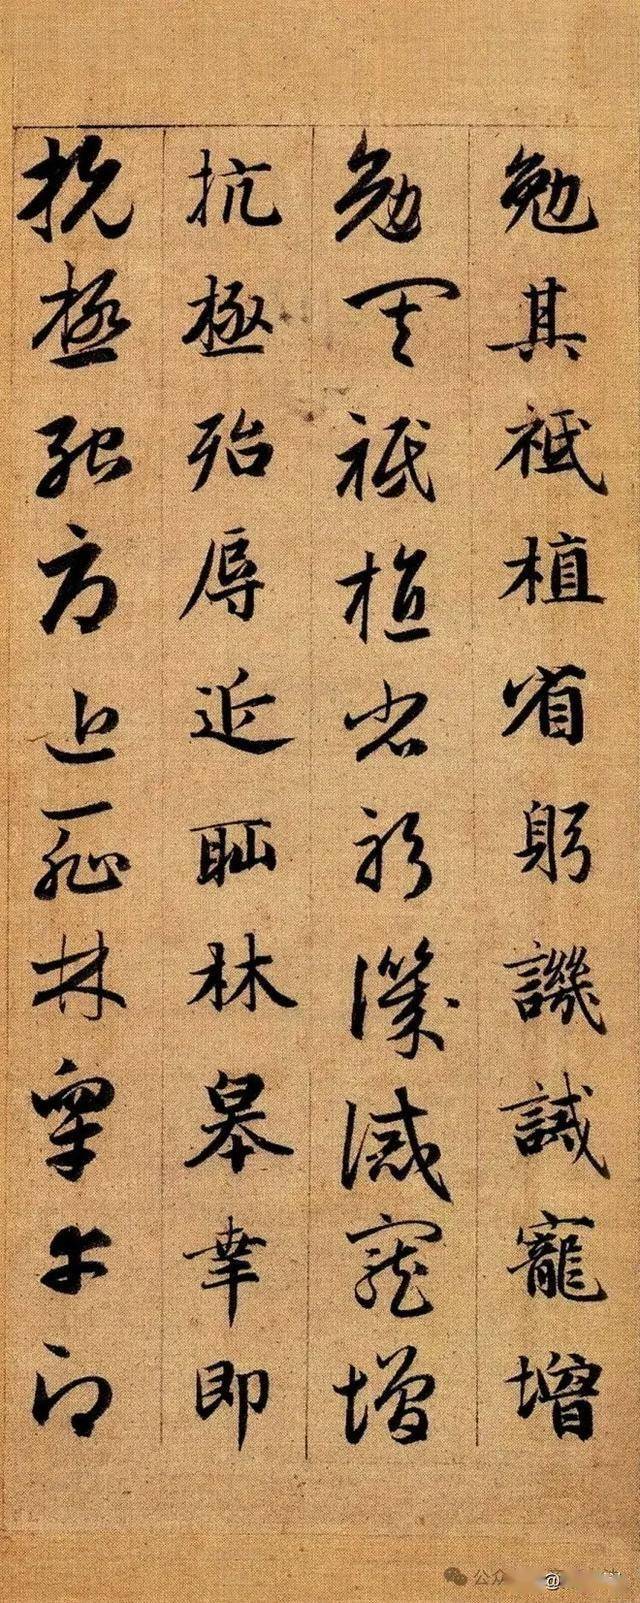 勉其祗植省躬譏誡寵增
勉其祗植省躬譏誡寵增
抗極殆辱近耻林皋幸即
抗極殆辱近耻林皋幸即
公众
@